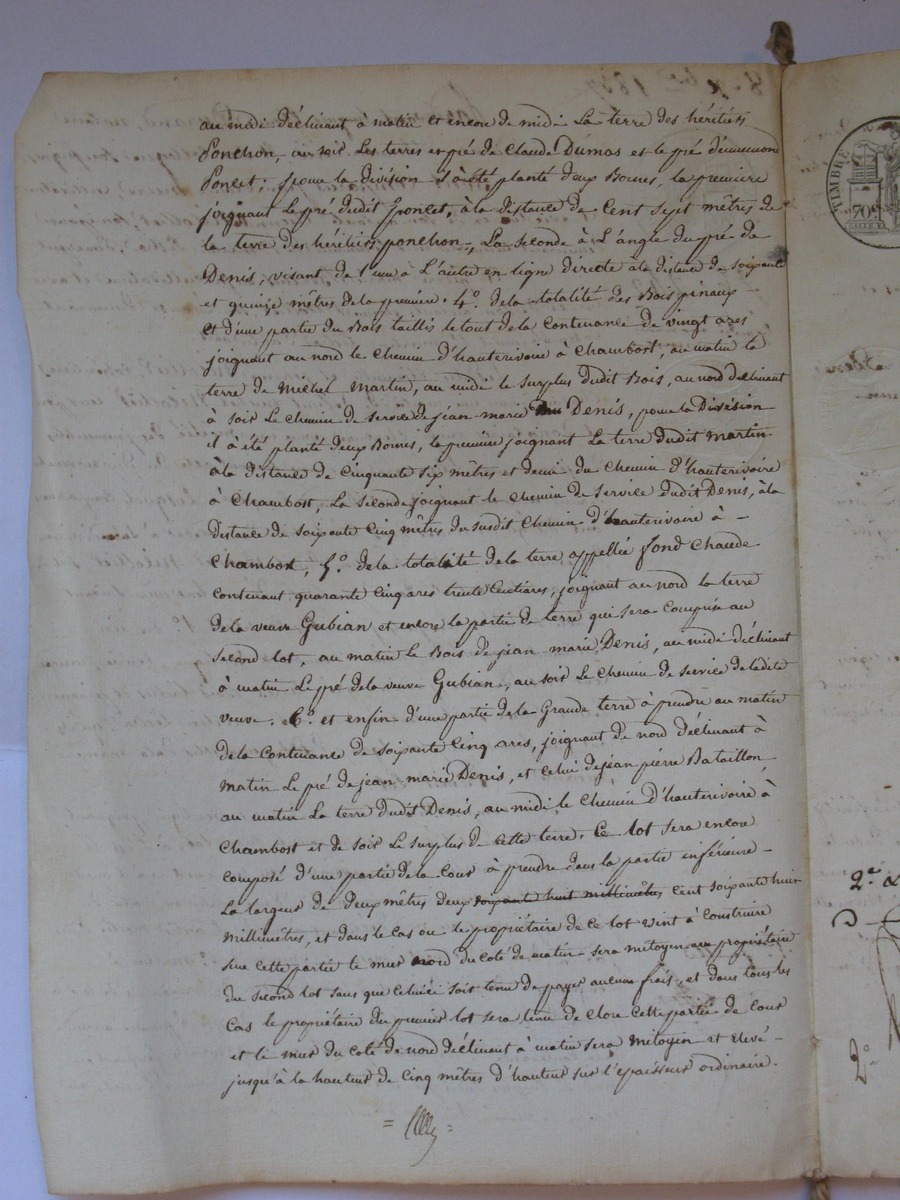 au midi déclinant à matin et encore de midi La terre des héritiers
Ponchon, au soir Les terres et pré de Claude Dumas et le pré d'
Poncet; pour la division il a été planté deux Bornes, la première
joignant Le pré dudit Poncet, à la distance de Cent sept mètres de
la terre des héritiers ponchon, La seconde à L'angle du pré de
Denis, visant de l'une à L'autre en ligne directe à la distance de soixante
et quinze mètres de la première. 4°. de la totalité des Bois pinaux -
Et d'une partie du Bois taillis le tout de la contenance de vingt ares
joignant au nord le chemin d'hauterivoire à Chambost, au matin la
terre de Michel Martin, au midi le surplus dudit Bois, au nord déclinant
à soir Le chemin de service de jean marie Denis, pour la Division
il a été planté deux Bornes, la première joignant La terre dudit Martin
à la distance de Cinquante six mètres et demi du chemin d'hauterivoire
à Chambost, La seconde joignant le chemin de service dudit Denis, à la
distance de soixante cinq mètres du susdit chemin d'hauterivoire à -
Chambost, 5°. de la totalité de la terre appellée fond Chaude
contenant quarante cinq ares trente centiares, joignant au nord la terre
de la veuve Gubian et encore la partie de terre qui sera comprise au
second lot, au matin Le Bois de jean marie Denis, au midi déclinant
à matin Le pré de la veuve Gubian, au soir Le chemin de service de ladite
veuve. 6°. et enfin d'une partie de la Grande terre à prendre au matin
de la contenance de soixante cinq ares, joignant de nord déclinant à
matin Le pré de jean marie Denis, et celui de jean pierre Bataillon,
au matin La terre dudit Denis, au midi le chemin d'hauterivoire à
Chambost et de soir Le surplus de cette terre. Ce lot sera encore
composé d'une partie de la Cour à prendre dans la partie inférieure -
La largeur de deux mètres deux soixante huit millimètres cent soixante huit
millimètres, et dans le cas ou le propriétaire de ce lot vint à construire
sur cette partie le mur nord du coté de matin sera mitoyen au propriétaire
du second lot sans que celui-ci soit tenu de payer aucun frais, et dans tous les
cas le propriétaire du premier lot sera tenu de clore cette partie de cour
et le mur du coté de nord déclinant à matin sera mitoyen et élevé -
jusqu'à la hauteur de cinq mètres d'hauteur sur l'épaisseur ordinaire.
TIMBRE
70c
2°
2°